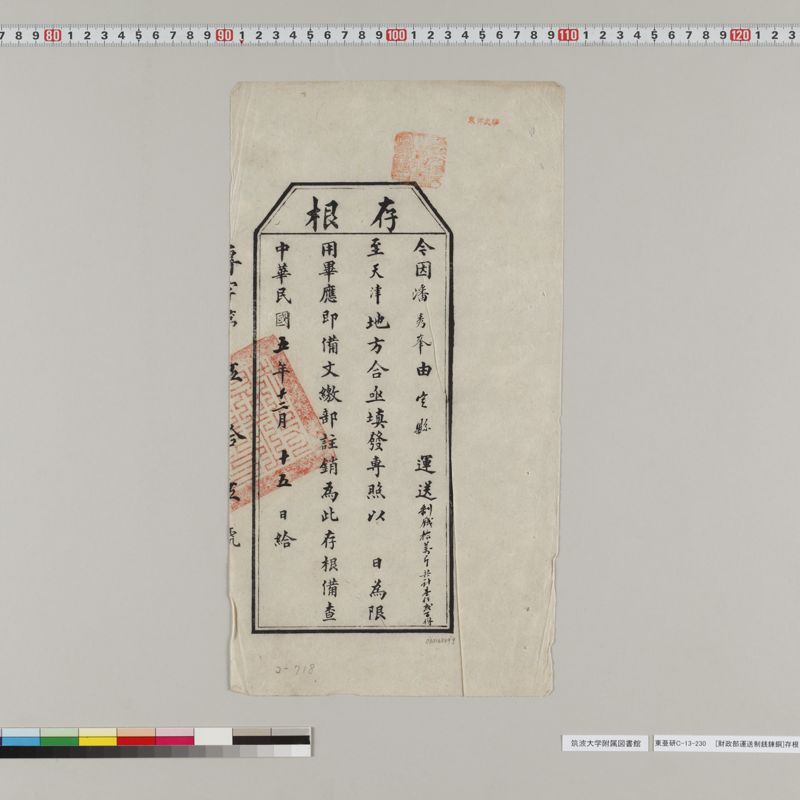 7 8 9 80 1 2 3 4 5 6 7 8 9 90 1 2 3 4 5 6 7 8 9 100 1 2 3 4 5 6 7 8 9 110 1 2 3 4 5 6 7 8 9 120 1 2 3
存根
令因潘秀奉由定縣運送制錢拾萬斤
至天津地方合亟填發專照以 日為限
用畢應即備文繳部註銷為此存根備查
中華民國五年十二月十五日給
伍拾
ユ-718
筑波大学附属図書館
東亜研C-13-230 [財政部運送制銭錬銅]存根